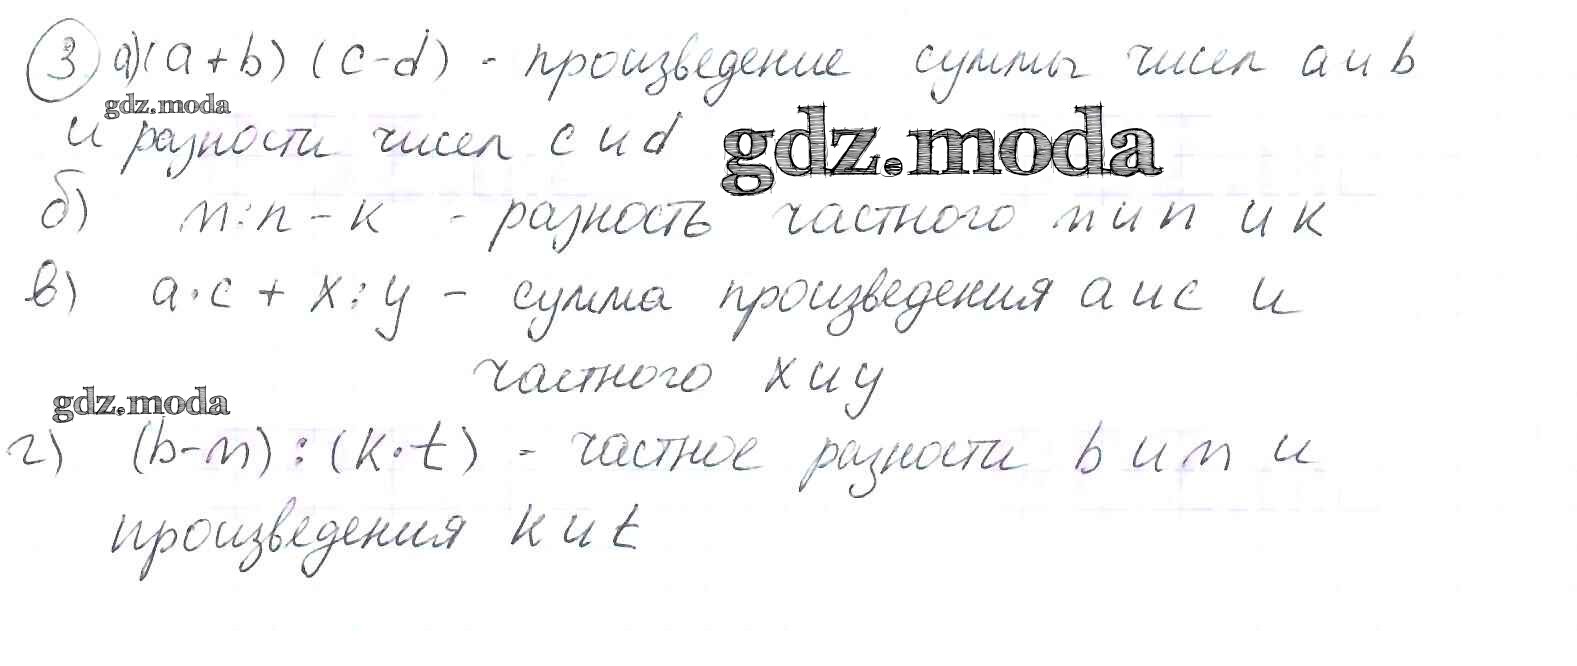 3 а) (a+b) (c-d) - произведение суммы чисел a и b
gdz.moda
и разности чисел c и d
gdz.moda
б) m:n - k - разность частного m и n и k
в) a·c + x:y - сумма произведения a и c и
частного x и y
gdz.moda
г) (b-m) : (k·t) - частное разности b и m и
произведения k и t